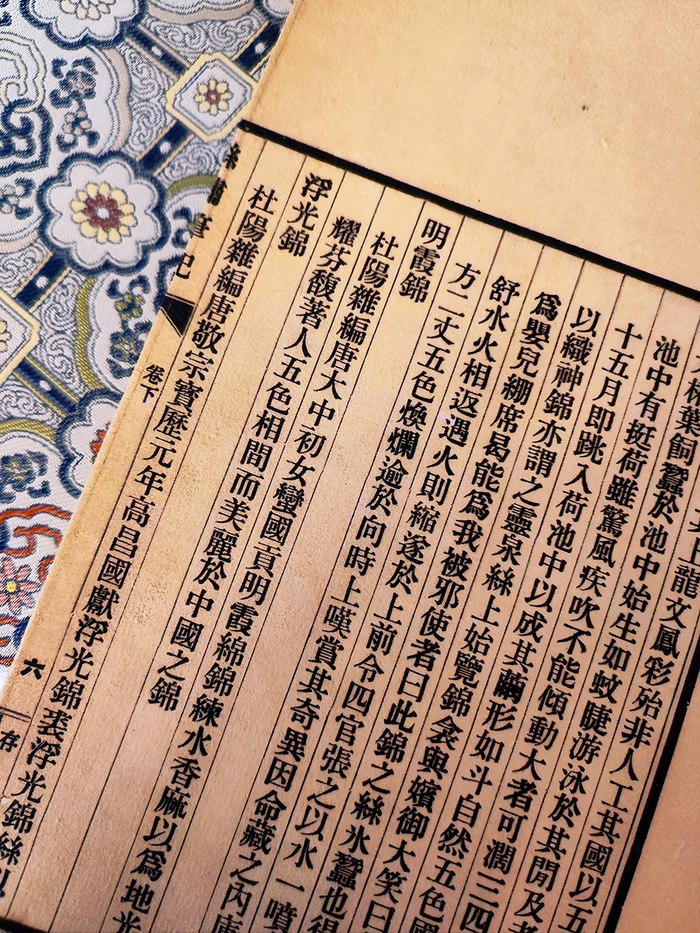 龍文鳳彩殆非人工其國以五
葉飼蠶於池中始生如蚊睫游泳於其閒及
池中有挺荷雖驚風疾吹不能傾動大者可濶三四
十五月即跳入荷池中以成其繭形如斗自然五色國
以織神錦亦謂之靈泉絲上始覽錦衾與嬪御大笑曰
爲嬰兒綳席曷能爲我被邪使者曰此錦之絲氷蠶也得
舒水火相返遇火則縮遂於上前令四官張之以水一噴
方二丈五色煥爛逾於向時上嘆賞其奇異因命藏之內庫
明霞錦
杜陽雜編唐大中初女蠻國貢明霞綿錦練水香麻以爲地光
耀芬馥著人五色相間而美麗於中國之錦
浮光錦
杜陽雜編唐敬宗寶歷元年高昌國獻浮光錦裘浮光錦絲以
絲繡筆記
卷下
六
存